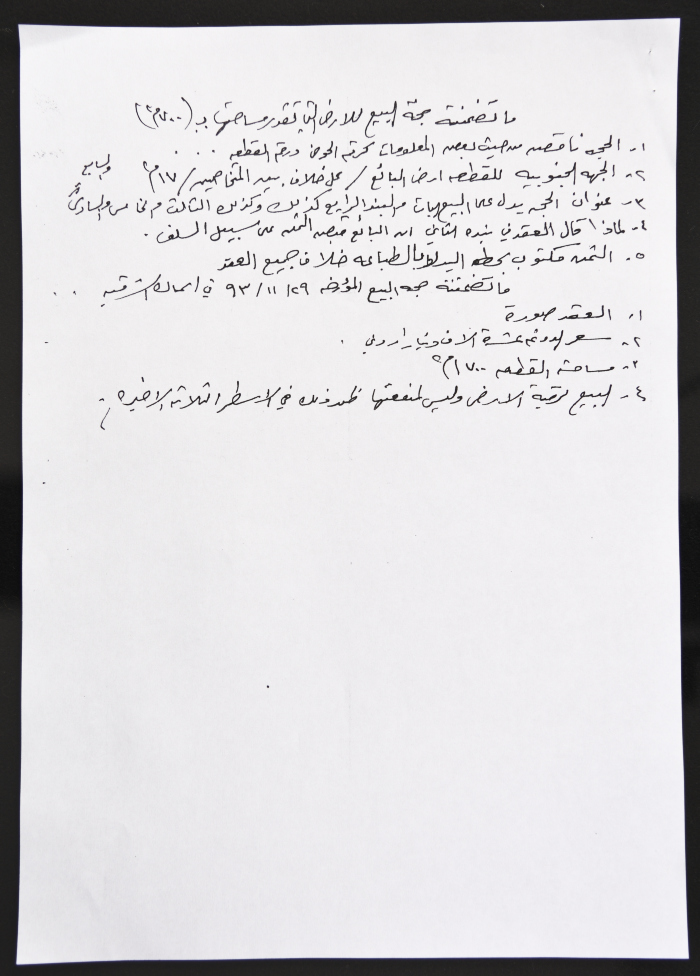 ما تضمنته حجة البيع للارض التي تقدر مساحتها بـ (٧٠٠م٢)
١- الحجه ناقصه من حيث بعض المعلومات كرقم الحوض ورقم القطعه . . .
٢- الجهه الجنوبيه للقطعه ارض البائع / على خلاف بين المتخاصمين / ١٧م٢
والسابع
٣- عنوان الحجه يدل على البيع البات والبند الرابع كذلك وكذلك الثالث والخامس والسادس
٤- لماذا قال العقد في بنده الثاني ان البائع قبض الثمن على سبيل السلف .
٥- الثمن مكتوب بخط اليد لا بالطباعه خلاف جميع العقد
ما تضمنته حجه البيع المؤرخه ٢٩/ ١١/ ٩٣ في الشرقيه . .
١- العقد صورة
٢- سعر الدونم عشرة الاف دينار اردني .
٣- مساحة القطعه ١٧٠٠م٢
٤- البيع لرقبة الارض وليس لمنفعتها ظهر ذلك في الاسطر الثلاثه الاخيره